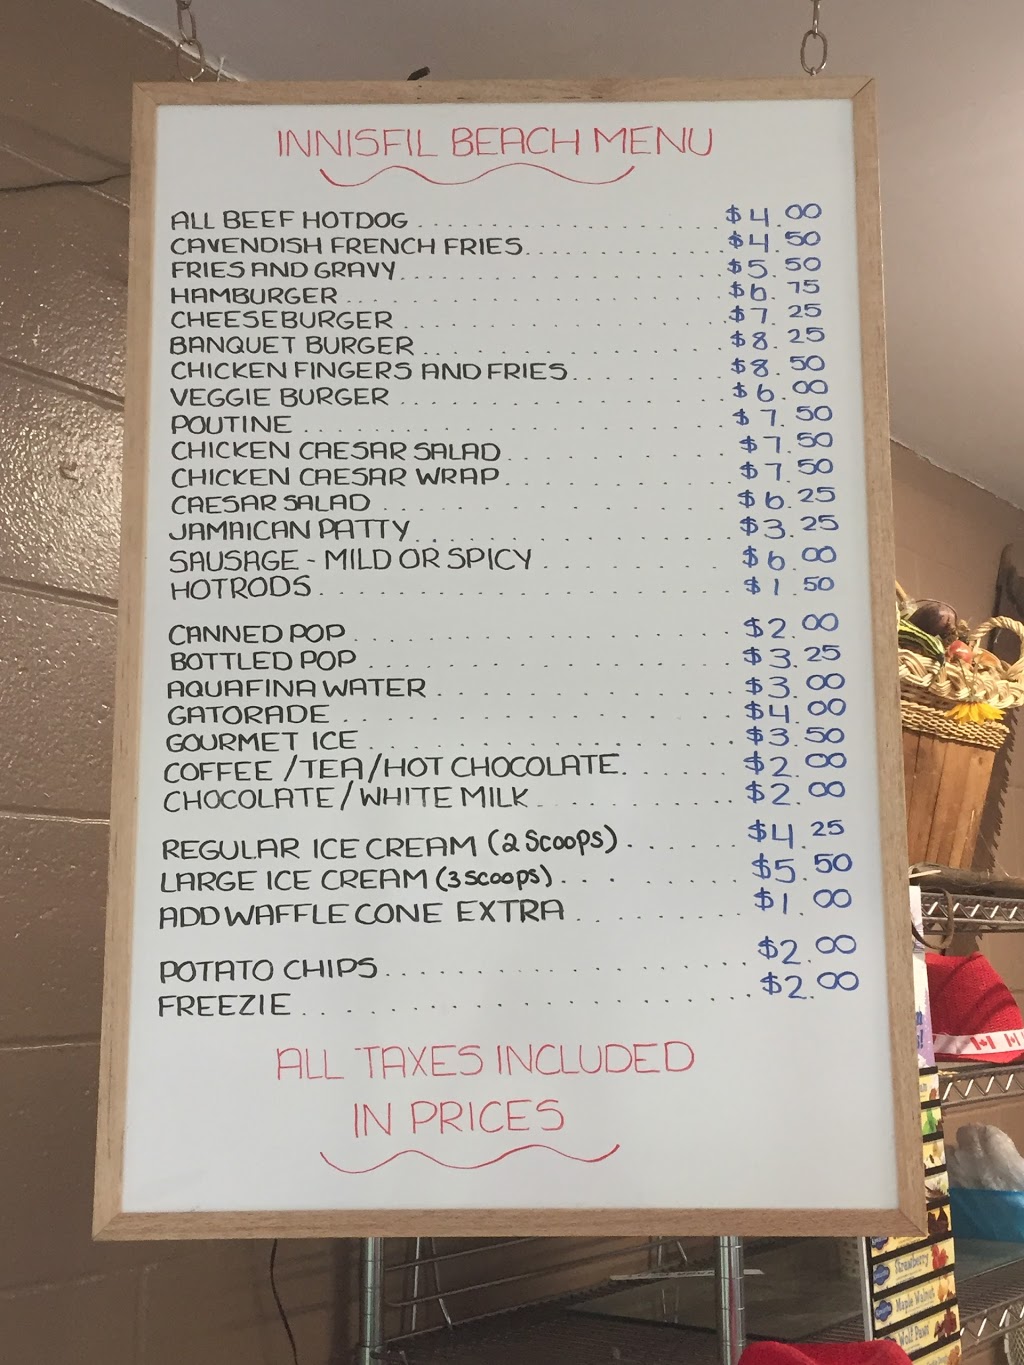 INNISFIL BEACH MENU
ALL BEEF HOTDOG . . . . . . . . . . . . . . . . $4.00
CAVENDISH FRENCH FRIES . . . . . . . . . . $4.50
FRIES AND GRAVY . . . . . . . . . . . . . . . . $5.50
HAMBURGER . . . . . . . . . . . . . . . . . . . $6.75
CHEESEBURGER . . . . . . . . . . . . . . . . $7.25
BANQUET BURGER . . . . . . . . . . . . . . . $8.25
CHICKEN FINGERS AND FRIES . . . . . . . . $8.50
VEGGIE BURGER . . . . . . . . . . . . . . . . $6.00
POUTINE . . . . . . . . . . . . . . . . . . . . . $7.50
CHICKEN CAESAR SALAD . . . . . . . . . . . $7.50
CHICKEN CAESAR WRAP . . . . . . . . . . . $7.50
CAESAR SALAD . . . . . . . . . . . . . . . . . $6.25
JAMAICAN PATTY . . . . . . . . . . . . . . . . $3.25
SAUSAGE - MILD OR SPICY . . . . . . . . . $6.00
HOTRODS . . . . . . . . . . . . . . . . . . . . $1.50
CANNED POP . . . . . . . . . . . . . . . . . . $2.00
BOTTLED POP . . . . . . . . . . . . . . . . . $3.25
AQUAFINA WATER . . . . . . . . . . . . . . $3.00
GATORADE . . . . . . . . . . . . . . . . . . . $4.00
GOURMET ICE . . . . . . . . . . . . . . . . . $3.50
COFFEE / TEA / HOT CHOCOLATE . . . . . . $2.00
CHOCOLATE / WHITE MILK . . . . . . . . . . $2.00
REGULAR ICE CREAM (2 Scoops) . . . . . . $4.25
LARGE ICE CREAM (3 scoops) . . . . . . . . $5.50
ADD WAFFLE CONE EXTRA . . . . . . . . . $1.00
POTATO CHIPS . . . . . . . . . . . . . . . . . $2.00
FREEZIE . . . . . . . . . . . . . . . . . . . . . $2.00
ALL TAXES INCLUDED
IN PRICES
Strawberry
Maple Walnut
Wolf Paws